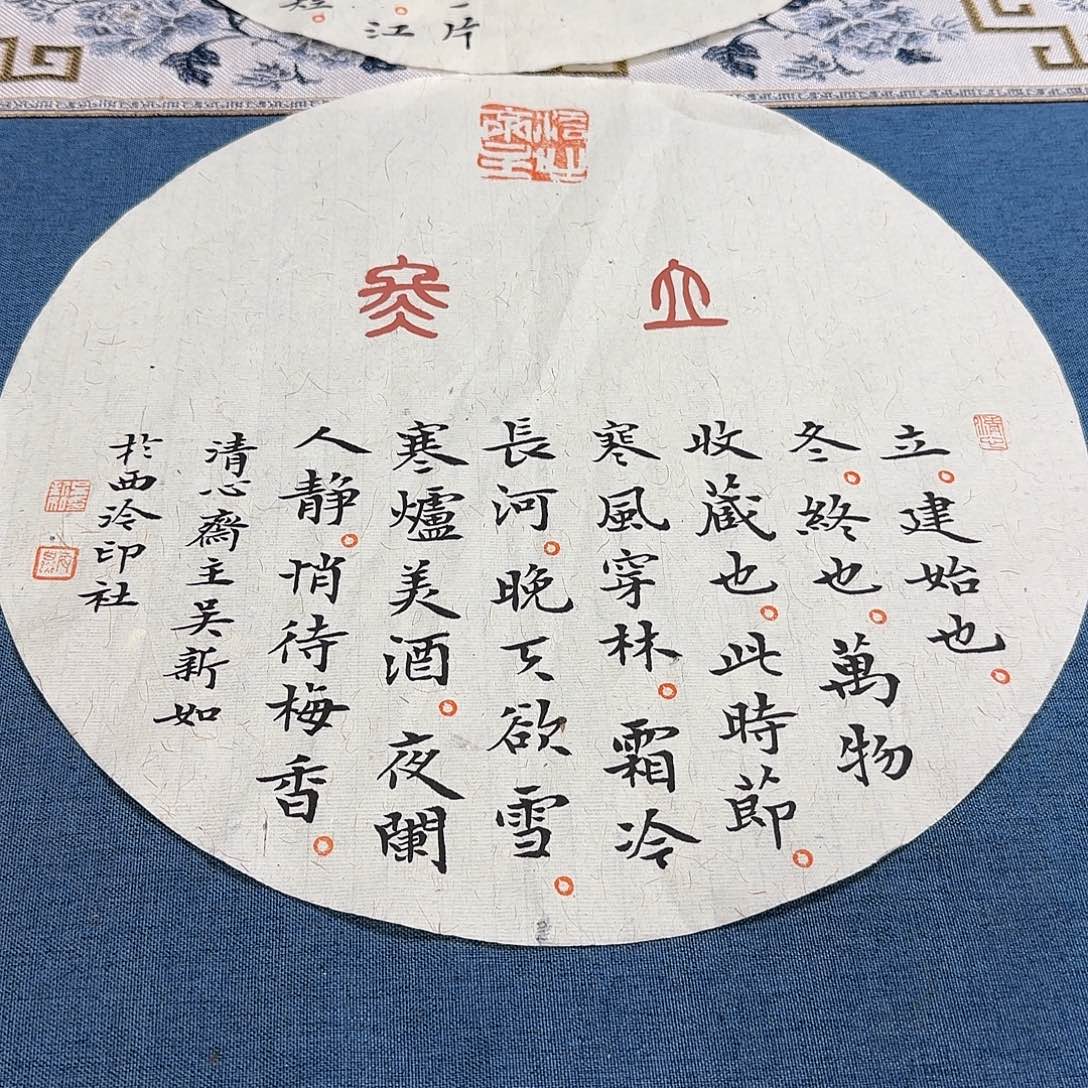 立冬
立。建始也。
冬。終也。萬物
收藏也。此時節。
寒風穿林。霜冷
長河。晚天欲雪。
寒爐美酒。夜闌
人靜。悄待梅香。
清心齋主吴新如
於西泠印社
片
江